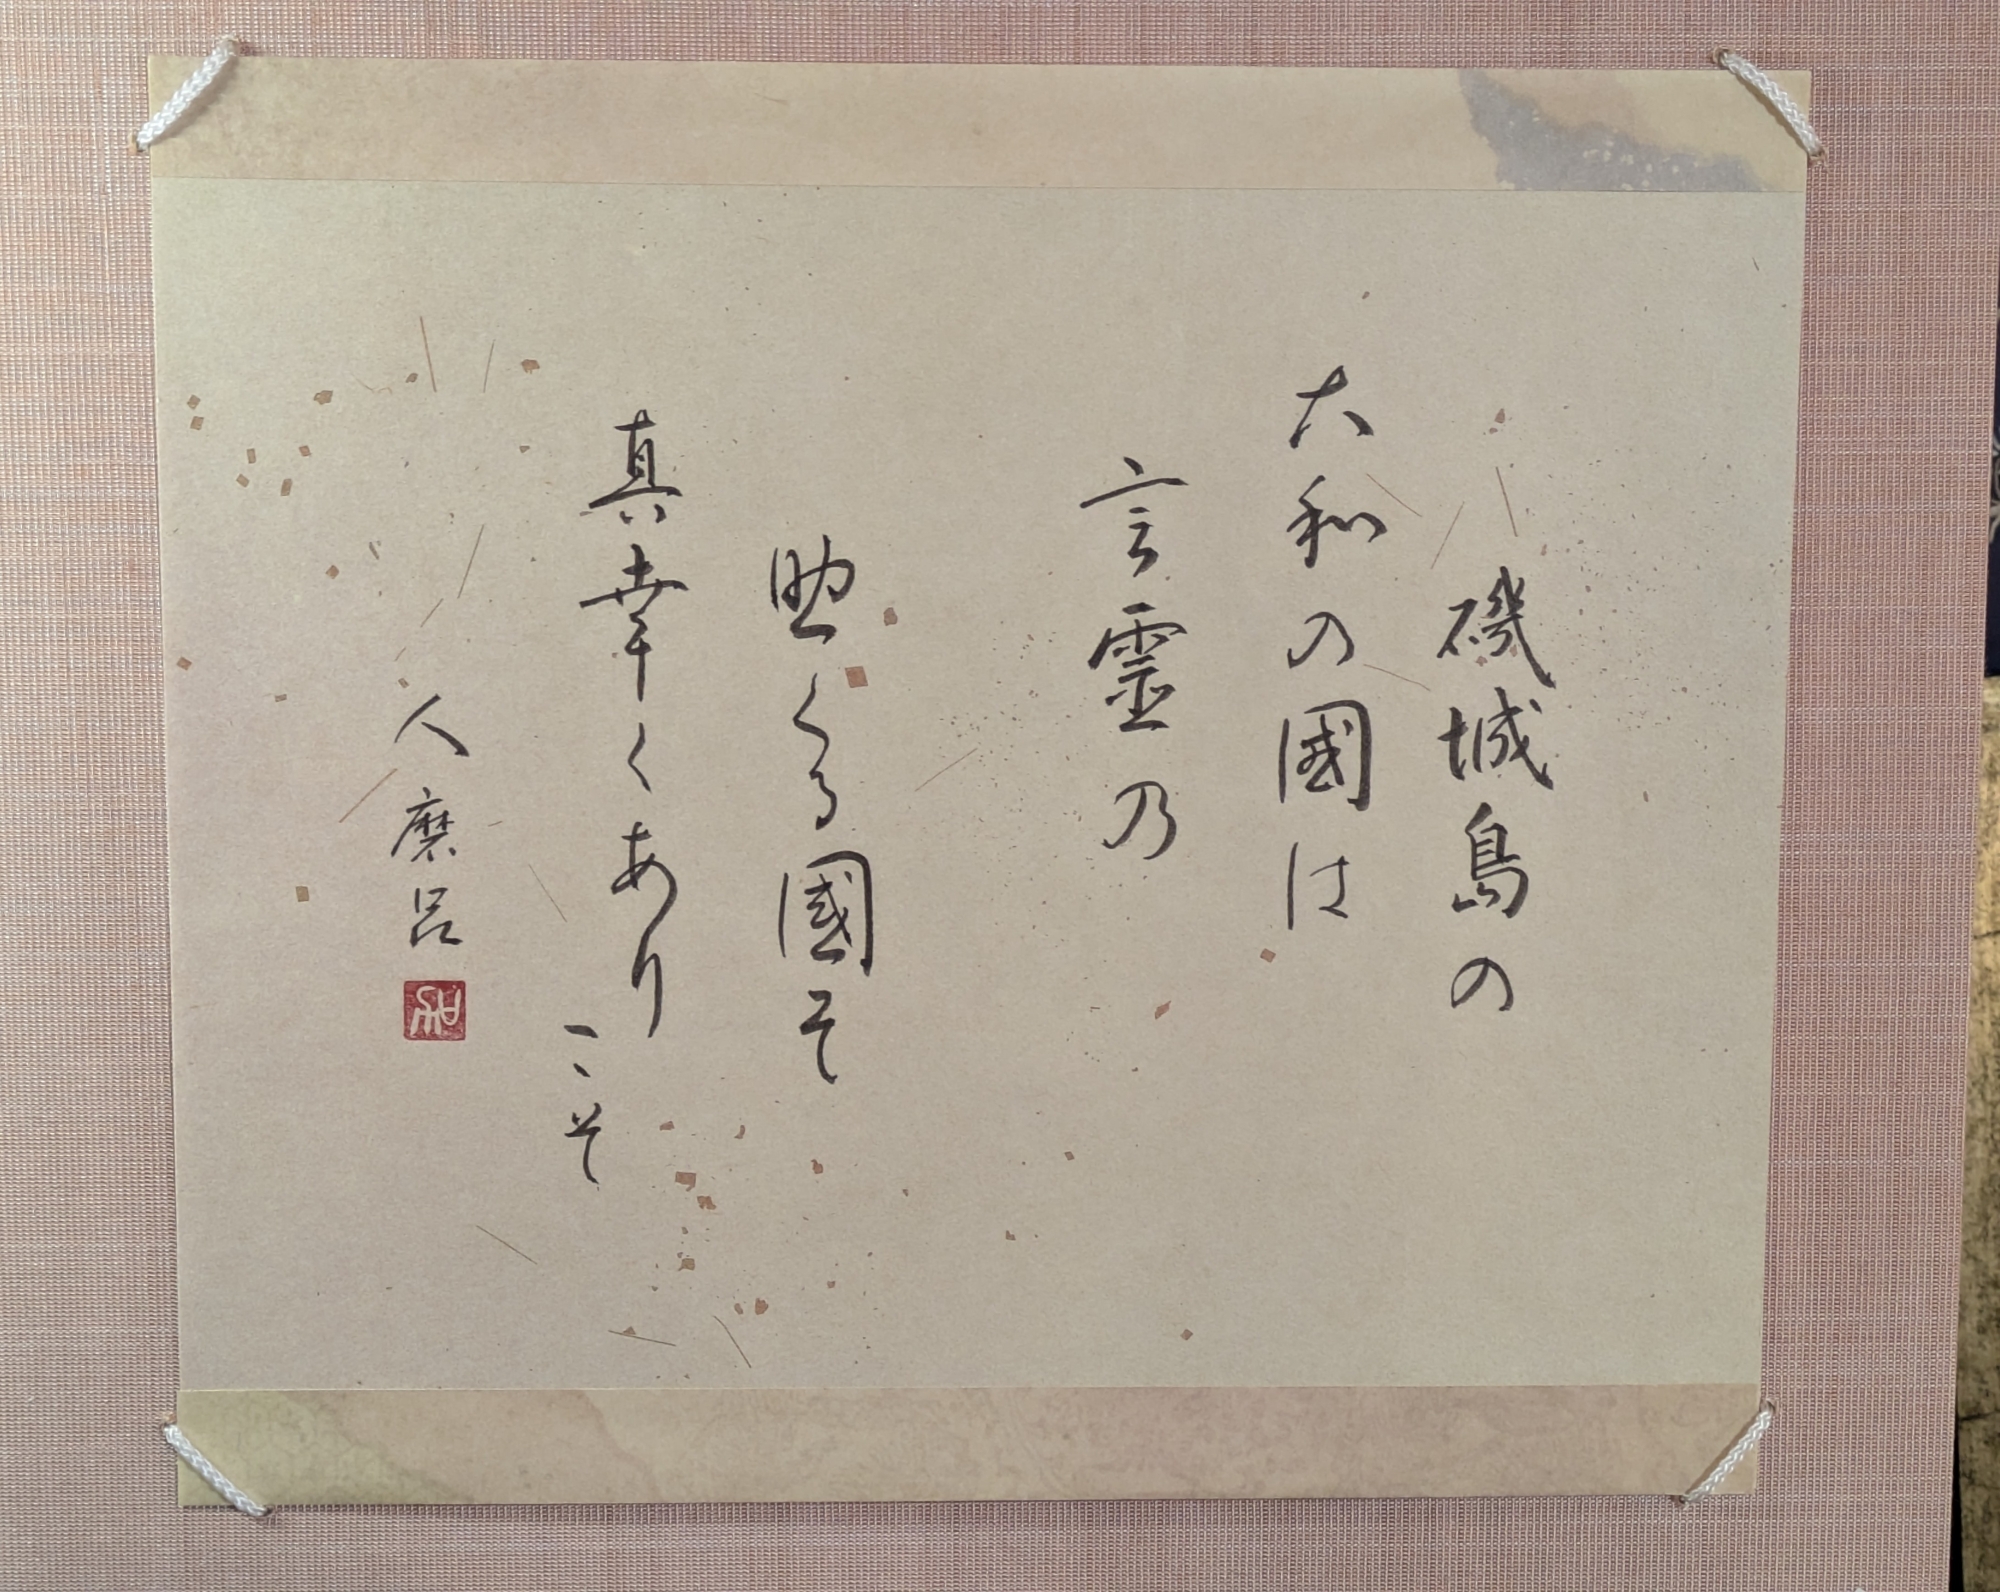 磯城島の
大和の國は
言霊の
助くる國そ
真幸くあり
こそ
人麿呂